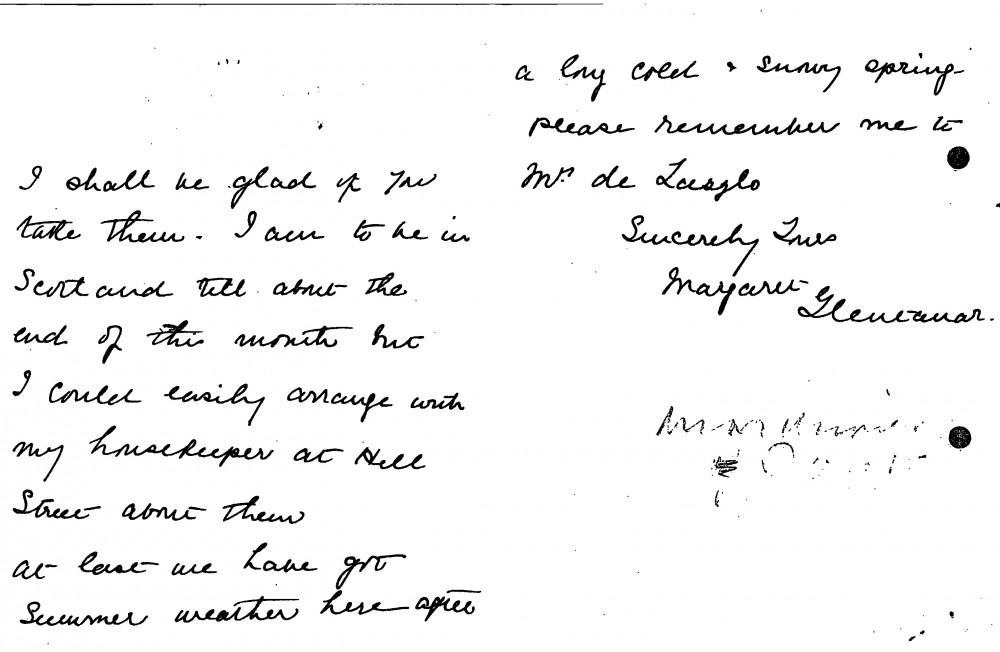 I shall be glad if you
take them. I am to be in
Scotland till about the
end of this month but
I could easily arrange with
my housekeeper at Hill
Street about them
at last we have got
summer weather here after
a long cold & snowy spring
please remember me to
Mrs de Laszlo
Sincerely Yours
Margaret
Glentanar.